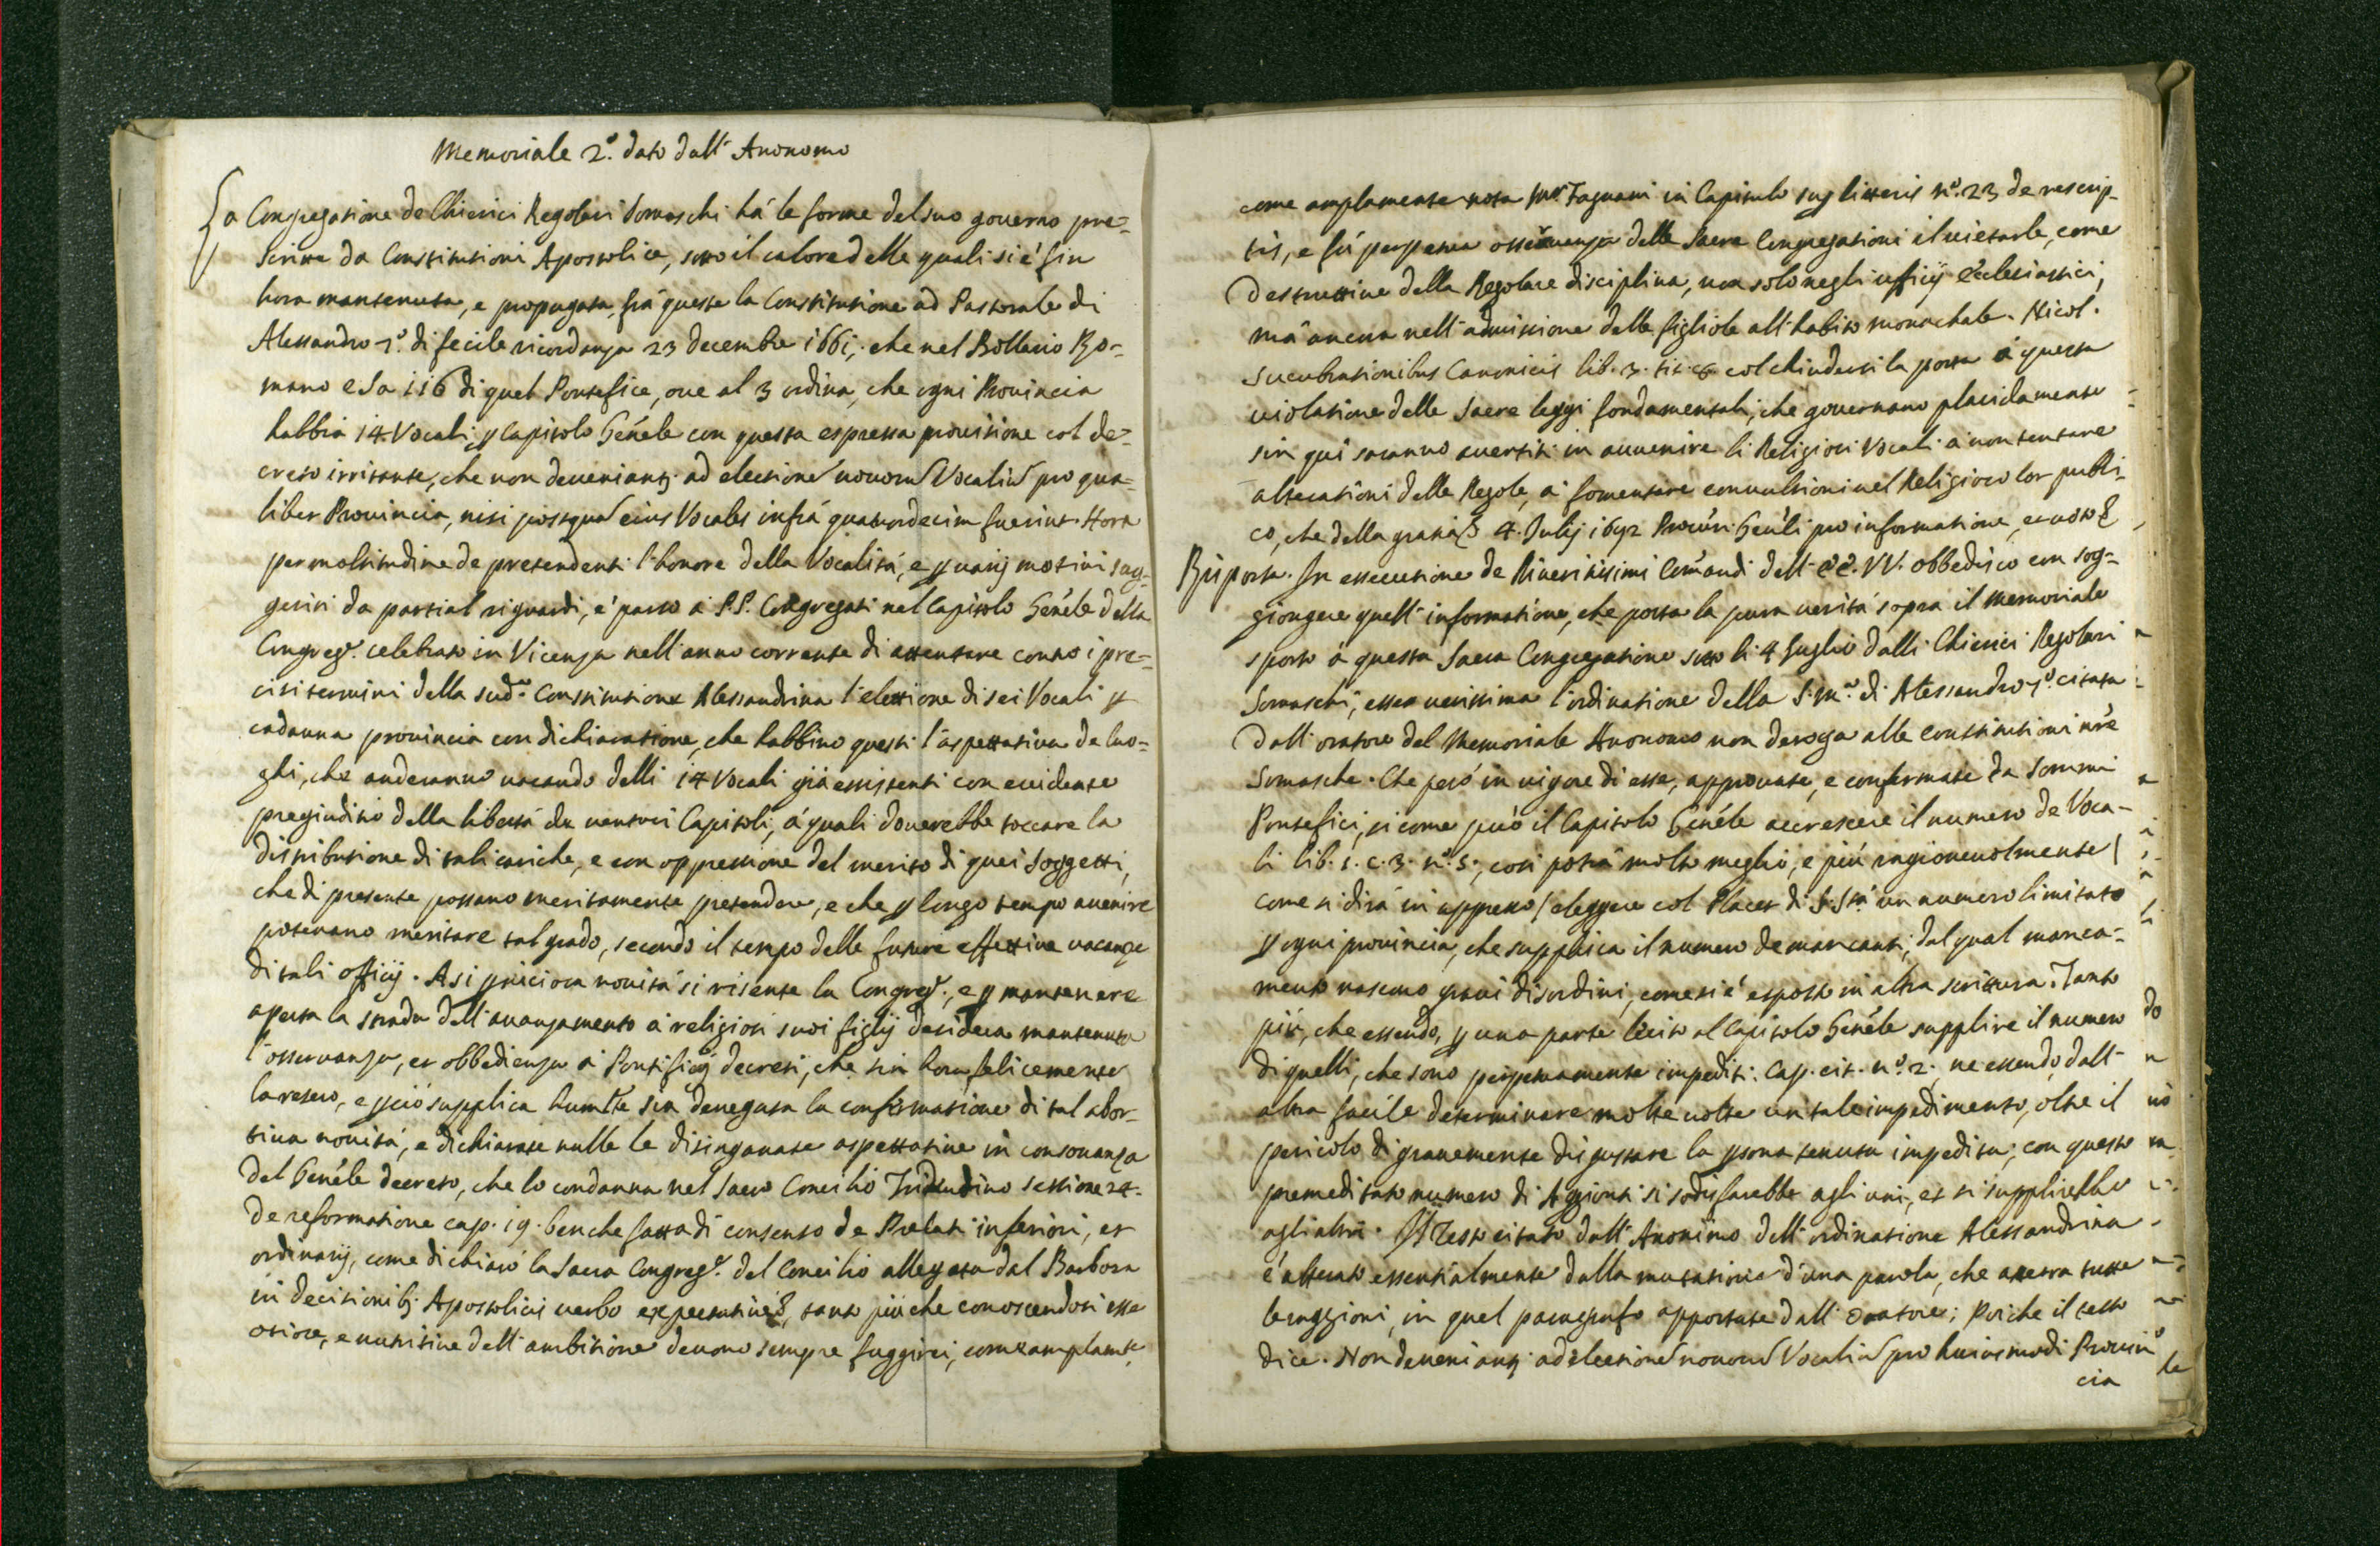 Memoriale 2.º dato dall' Anonomo
La Congregatione de Chierici Regolari Somaschi há le forme del suo governo pre=
scritte da Constitutioni Apostolice, sotto il calore delle quali si é sin
hora mantenuta, e propagata, frá queste la Constitutione ad Pastorale di
Alessandro 7.º di felice ricordanza 23 decembre 1661, che nel Bollario Ro-
mano e la 116 di quel Pontefice, oue al 3 ordina, che ogni Prouincia
habbia 14. Vocali, ꝑ Capitolo Genele con questa espressa prouisione col de=
creto irritante, che non deueniant ad electione nouoru Vocaliu pro qua=
libet Prouincia, nisi postqua eius Vocales infrá quatuordecim fuerint. Hora
per moltitudine de pretendenti l'honore della Vocalitá, e ꝑ varij motiui sug-
geriti da partiali riguardi, é parso á P.P. Congregati nel Capitolo Genele della
Congreg.e celebrato in Vicenza nell' anno corrente di attentare contro i pre=
cisi termini della sud.a Constitutione Alessandrina l'elettione di sei Vocali ꝑ
cadauna prouincia con dichiaratione, che habbino questi l'aspettatiua de luo=
ghi, che anderanno uacando delli 14 Vocali giá essistenti con euidente
pregiuditio della libertá de venturi Capitoli, á quali douerebbe toccare la
distributione di tali cariche, e con oppressione del merito di quei soggetti,
che di presente possano meritamente pretendere, e che ꝑ longo tempo auenire
poteuano meritare tal grado, secondo il tempo delle future effettiue uacanze
di tali officij. A si ꝑniciosa nouitá si risente la Congreg.e, e ꝑ mantenere
aperta la strada dell' auanzamento á religiosi suoi figlij desidera mantenuta
l'osseruanza, et obbedienza á Pontificij decreti, che sin hora felicemente
la resero, e ꝑ ció supplica humilte sia denegata la confirmatione di tal abor-
tiua nouitá, e dichiarate nulle le disinganate aspettatiue in consonanza
del Genele decreto, che lo condanna nel sacro Concilio Tridentino sessione 24.
de reformatione cap. 19. benche fatta di consenso de Prelati inferiori, et
ordinarij, come dichiaró la Sacra Congreg.e del Concilio allegata dal Barbosa
in decisionib. Apostolicis uerbo expectatiue, tanto piú che conoscendosi esse
otiose, e nutritiue dell' ambitione deuono sempre fuggirsi, come amplamte
come amplamente nota Mr. Fagnani in Capitulo sug litteris nº. 23 de rescrip-
tis, e fú perpetua osseruanza della Sacra Congregationi il uietarle, come
destruttiue della Regolare disciplina, non solo negli ufficij ecclesiastici,
má ancora nell' admissione delle figliole all' habito monachale. Nicol.
Lucubrationibus Canonicis lib. 3. tit. 8. col chiudersi la porta á questa
uiolatione delle Sacre leggi fondamentali, che gouernano placidamente
sin qui saranno auertiti in auuenire li Religiosi Vocali á non tentare
alterationi delle Regole, á fomentare conuulsioni nel Religioso lor publi-
co, che della gratia 4. Julij 1692 Procuri Genli pro informatione, et uoto
Risposta. In essecutione de Riueritissimi Comandi dell' EE. VV. obbedisco con sog-
giongere quell' informatione, che porta la pura ueritá sopra il memoriale
sporto á questa Sacra Congregatione sotto li 4 luglio dalli Chierici Regolari
Somaschi, esser uerissima l'ordinatione della S.M.a di Alessandro 7.º citata
dall' oratore del Memoriale Anonomo non deroga alle constitutioni nre
Somasche. Che peró in uigore di esse, approuate, e confermate da Sommi
Pontefici, si come può il Capitolo Genele accrescere il numero de Voca-
li lib. 1. c. 3. nº. 5., cosi potrá molto meglio, e piú ragioneuolmente (
come si dirá in appresso) eleggere col Placet di S. Stá un numero limitato
ꝑ ogni prouincia, che supplisca il numero de mancanti, dal qual manca=
mento nascono graui disordini, come si é esposto in altra scrittura. Tanto
piú, che essendo, ꝑ una parte lecito al Capitolo Genele supplire il numero
di quelli, che sono perpetuamente impediti. Cap. cit. nº. 2., ne essendo dall'
altra facile determinare molte uolte un tale impedimento, oltre il
pericolo di grauemente disgustare la ꝑsona tenuta impedita; con questo
premeditato numero di Aggionti si sodisfarebbe agli uni, et si supplirebbe
agli altri. Il Testo citato dall' Anonimo dell' ordinatione Alessandrina
é alterato essentialmente dalla mutatione d'una parola, che atterra tutte
le raggioni, in quel paragrafo apportate dall' Oratore; Poiche il testo
dice. Non deueniant ad electione nouoru Vocaliu pro huiusmodi Prouin
cia